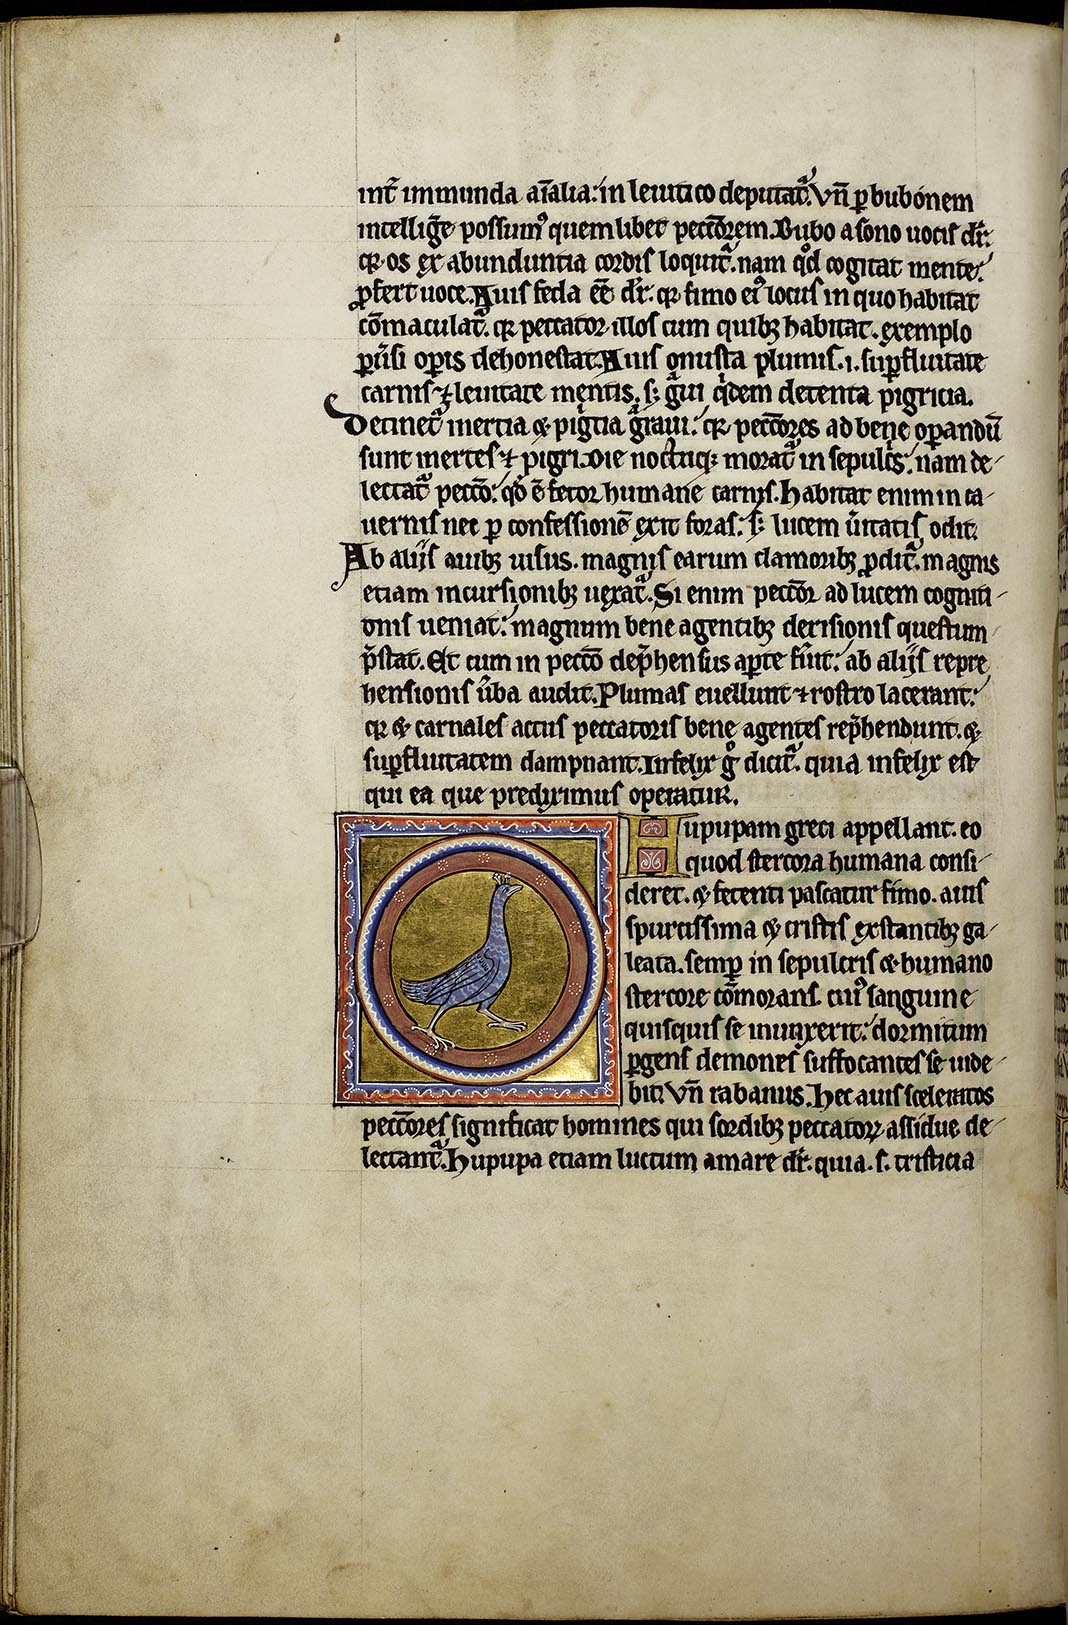 int̄ immunda aīalia: in leuitico deputat᷑. Vn̄ ꝑ bubonem
intelligēe possum᷒ quemlibet pectōrem. Bubo a sono uocis dr̄:
qr os ex abunduntia cordis loquit᷑. nam qd̓ cogitat mente:
ꝓfert uoce. Auis feda eē dr̄. qr fimo ei᷒ locus in quo habitat
cōmaculat᷑. qr peccator illos cum quibꝫ habitat. exemplo
ꝑuersi oꝑis dehonestat. Auis onusta plumis .i. suꝑfluitate
carnis ⁊ leuitate mentis. sꝫ gͣui qͥdem detenta pigricia.
Detinet᷑ inertia & pigtia gͣaui: qr pectōres ad bene oꝑandū
sunt inertes ⁊ pigri. Die noctuqꝫ morat᷑ in sepulcs: nam de-
lectat᷑ peccō: qd̓ ē fetor humane carnis. Habitat enim in ca-
uernis nec ꝑ confessionē exit foras: sꝫ lucem ūitatis odit.
Ab alijs auibꝫ uisus. magnis earum clamoribꝫ ꝓdit᷑. magnis
etiam incursionibꝫ uexat᷑. Si enim pectōr ad lucem cogniti-
onis ueniat: magnum bene agentibꝫ derisionis questum
p̄stat. Et cum in peccō dep̄hensus aꝑte fūit: ab alijs repre
hensionis ūba audit. Plumas euellunt ⁊ rostro lacerant:
qr & carnales actus peccatoris bene agentes rep̄hendunt. &
suꝑfluitatem dampnant. Infelix gͦ dicit᷑. quia infelix est
qui ea que prediximus operatur.
Hupupam greci appellant. eo
quod stercora humana consi-
deret. & fetenti pascatur fimo. auis
spurcissima & cristis exstantibꝫ ga-
leata. semꝑ in sepulcris & humano
stercore cōmorans. cui᷒ sanguine
quisquis se inunxerit: dormitum
ꝑgens demones suffocantes se uide-
bit. Vn̄ rabanus. Hec auis sceleratos
pectōres significat homines qui sordibꝫ peccatoꝝ assidue de-
lectant᷑. Hupupa etiam luctum amare dr̄. quia .s. tristicia